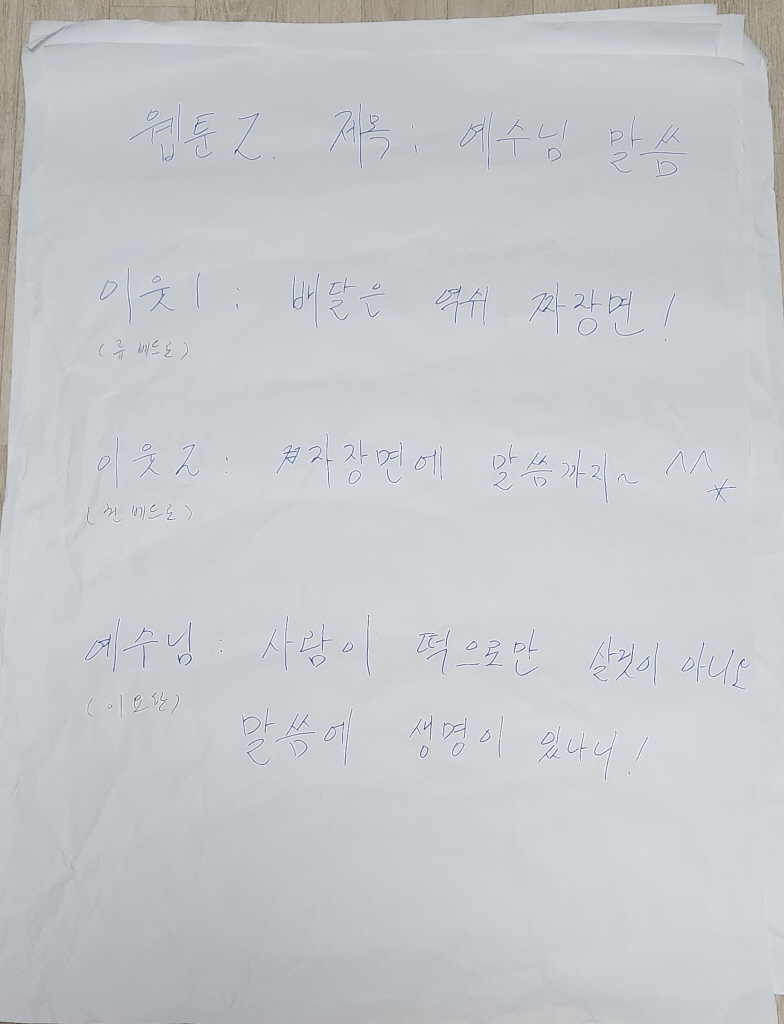 웹툰 2. 제목 : 예수님 말씀
이웃 1 : 배달은 역쉬 짜장면!
(류 베드로)
이웃 2 : 짜장면에 말씀까지~ ^^*
(천 베드로)
예수님 : 사람이 떡으로만 살것이 아니요
(이 요한)
말씀에 생명이 있나니!